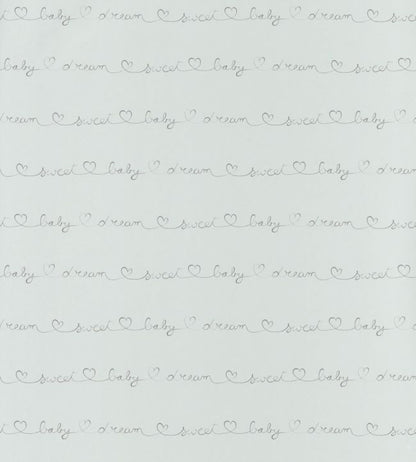 sweet baby dream sweet baby dream sweet
baby dream sweet baby dream sweet
dream sweet baby dream sweet baby
dream sweet baby dream sweet baby dream
sweet baby dream sweet baby dream sweet
baby dream sweet baby dream sweet
dream sweet baby dream sweet baby
dream sweet baby dream sweet baby dream
sweet baby dream sweet baby dream sweet